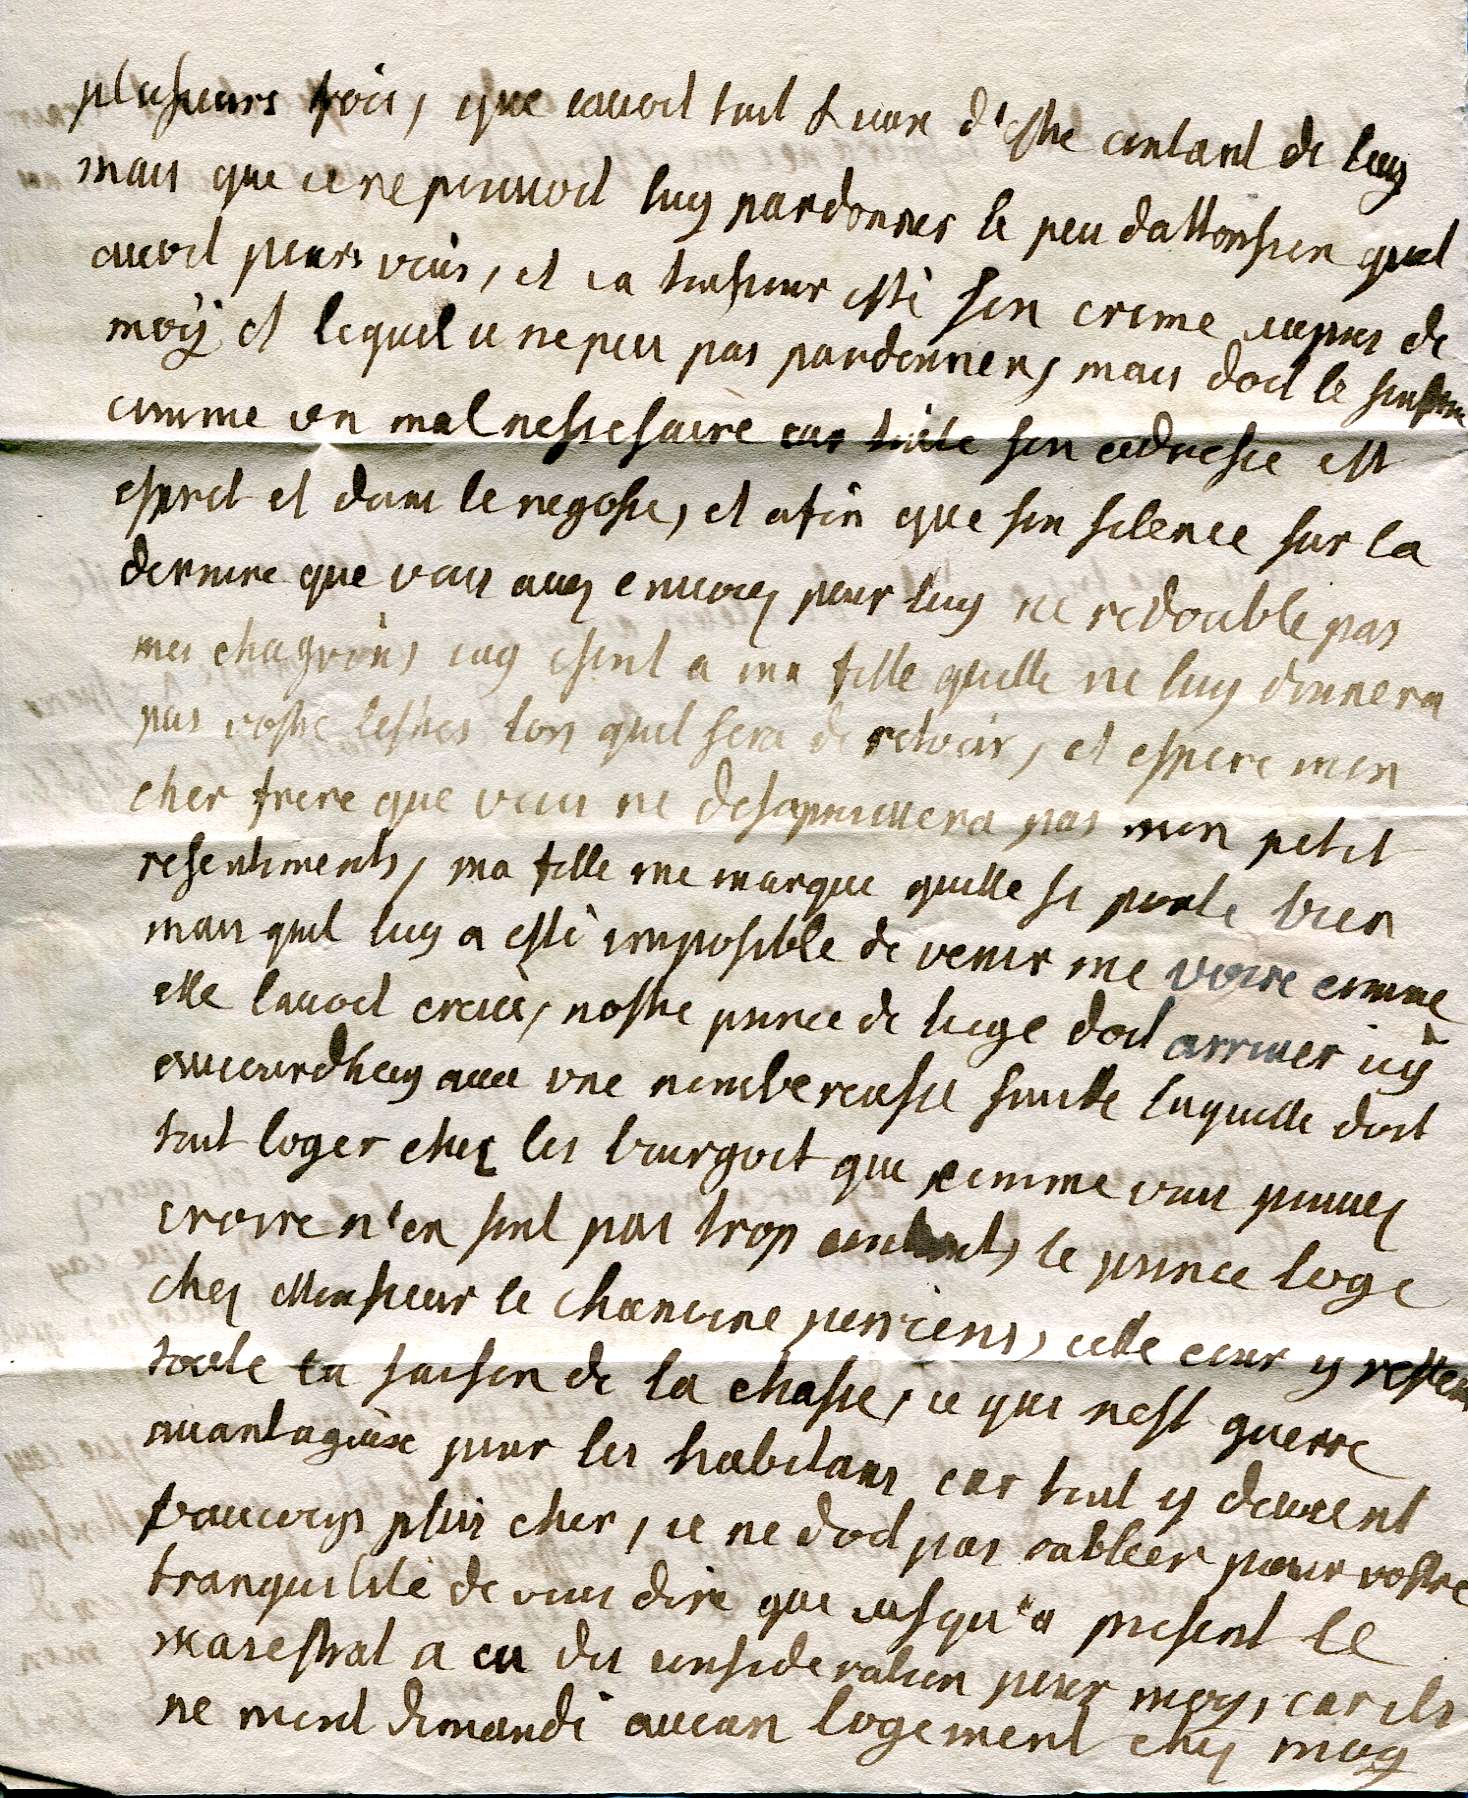 plusieurs fois, que javoit tout lieux d'estre contant de luy
mais que je ne pouvoit luy pardonner le peu dattonsion quil
avoit pour vous, et sa tousiour esté son crime aupres de
moÿ et lequel je ne peu pas pardonner, mais doit le
comme un mal nessesaire car toute son adresse est
esprit et dans le negosse, et afin que son silence sur la
derniere que vous avez envoiez pour luy ne redouble pas
mes chagrins jay escrit a ma fille quelle ne luy donnera
pas vostre lestres lors quil sera de retour, et espere mon
cher frere que vous ne desaprouvera pas mon petit
resentiments, ma fille me marque quelle se porte bien
mais quil luy a esté imposible de venir me voire comme
elle lavoit creue, nostre prince de liege doit arriver icÿ
aujourdhuy avec une nombereuse suitte laquelle doit
tout loger chez les bourgoit que comme vous pouvez
croire n'en sont pas trop contants, le prince loge
chez Monsieur le chanoine perriens, cette cour y restera
toute la saison de la chasse, ce qui nest guerre
avantagieux pour les habitans car tout y devient
baucoup plus cher, je ne doit pas oublier pour vostre
tranquilité de vous dire que jusqu'a present le
mareshal a eu du consideration pour moy, car ils
ne mont demandé aucun logement chez moy